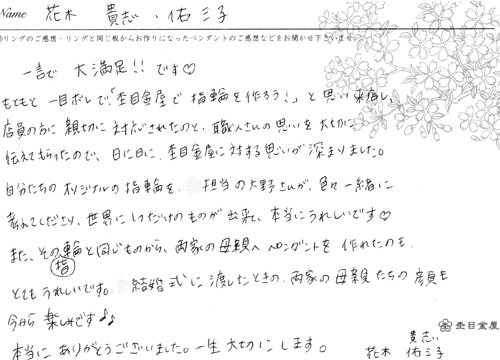 Name 花木 貴志・佑三子
リングのご感想・リングと同じ板からお作りになったペンダントのご感想などをお聞かせ下さいませ
一言で 大満足!! です♡
もともと 一目ボレで「杢目金屋で 指輪を作ろう!」と思い 来店し、
店員の方に 親切に 対応されたのと、職人さんの思いを 大切に
伝えてもらったので、日に日に、杢目金屋に対する思いが 深まりました。
自分たちの オリジナルの指輪を、担当の大野さんが、色々一緒に
考えてくださり、世界に1つだけのものが出来て、本当にうれしいです♡
また、その指輪と同じものから、両家の母親へ ペンダントを 作れたのも、
とても うれしいです。 結婚式に渡したときの、両家の母親たちの 顔も
今から 楽しみです♪♪
本当に ありがとうございました。一生 大切に します。
貴志
花木 佑三子
杢目金屋